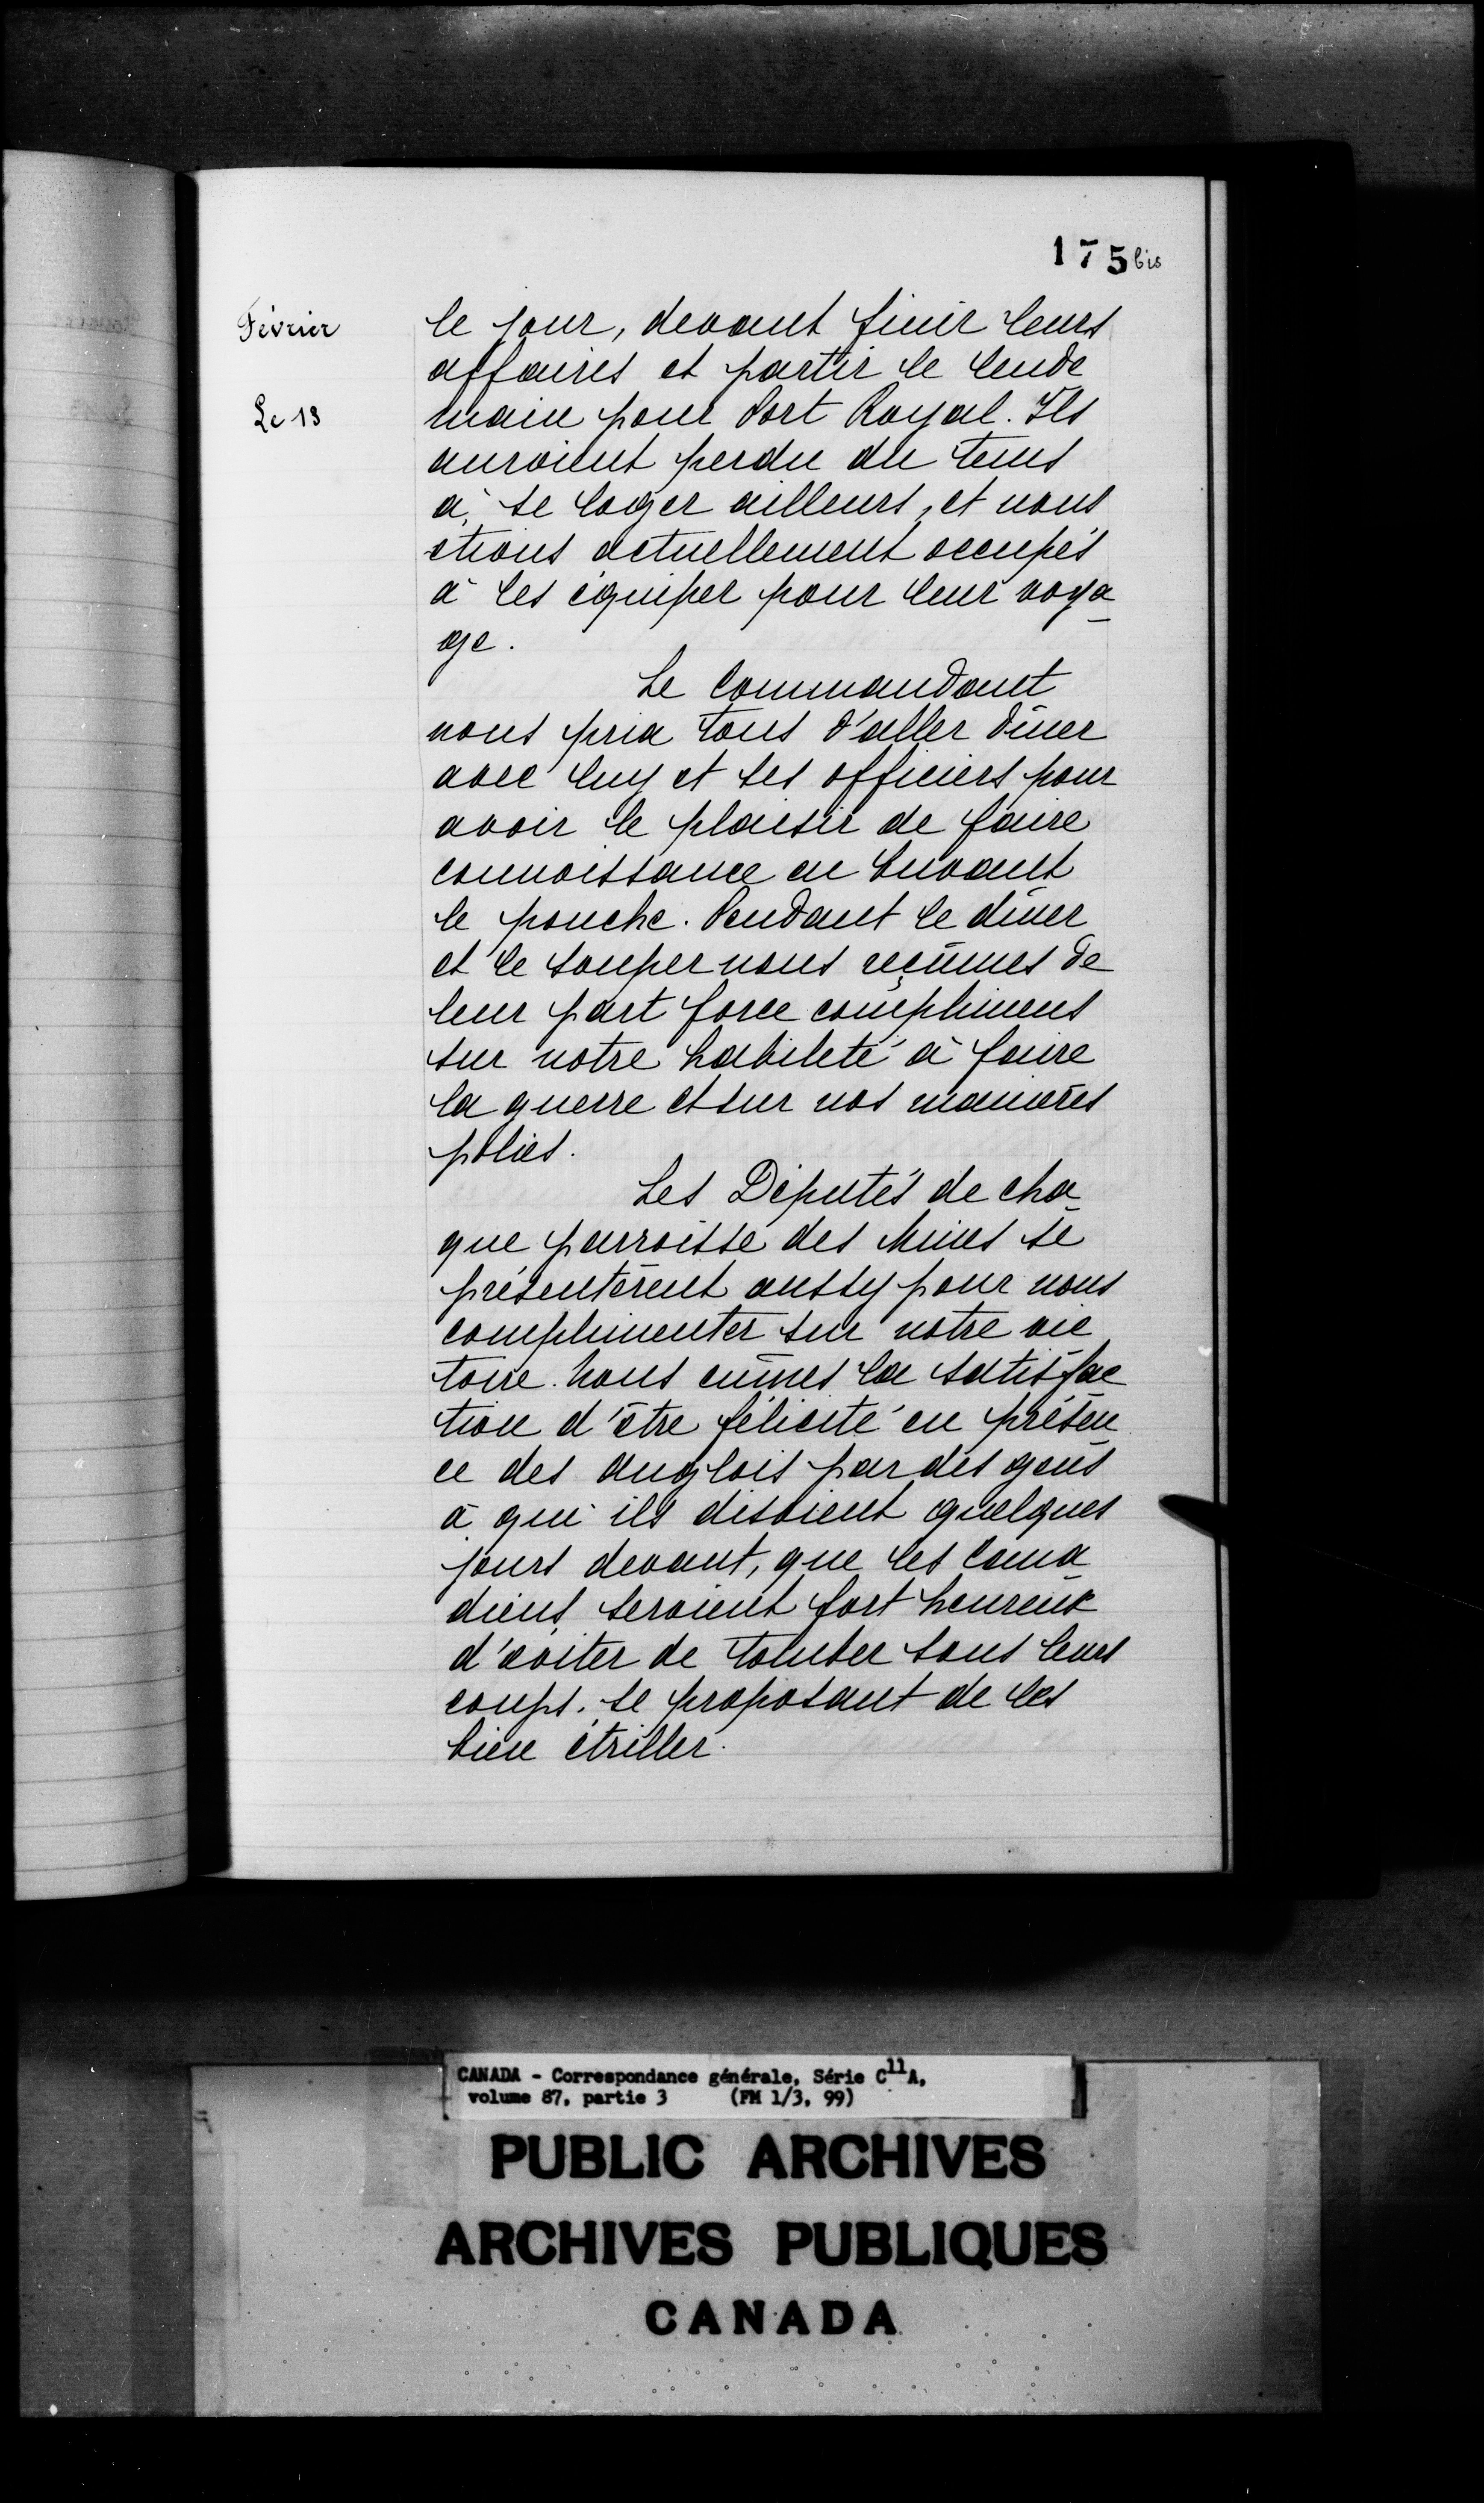 175 bis
Février
le jour, devant finir leurs
affaires et partir le lende
Le 13
main pour Port Royal. Ils
auroient perdu du tems
à se loger ailleurs, et nous
étions actuellement occupés
à les équiper pour leur voya
ge.
Le Commandant
nous pria tous d'aller diner
avec luy et ses officiers pour
avoir le plaisir de faire
connoissance en buvant
le ponche. Pendant le diner
et le souper nous reçûmes de
leur part force complimens
sur notre habileté à faire
la guerre et sur nos manières
polies.
Les Députés de cha
que parroisse des Mines se
présentèrent aussy pour nous
complimenter sur notre vic
toire. Nous eûmes la satisfac
tion d'être félicité en présen
ce des anglois par des gens
à qui ils disoient quelques
jours devant, que les Cana
diens seroient fort heureux
d'éviter de tomber sous leurs
coups, se proposant de les
bien étriller.
CANADA - Correspondance générale, Série C11A,
volume 87, partie 3 (FM 1/3, 99)
PUBLIC ARCHIVES
ARCHIVES PUBLIQUES
CANADA